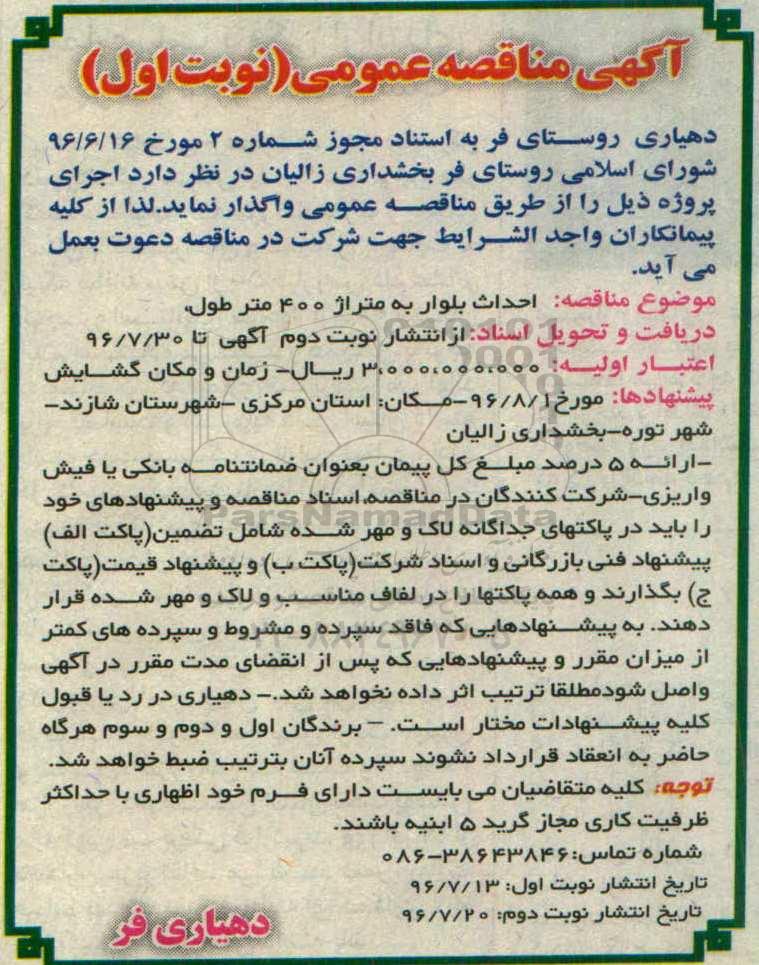 آگهی مناقصه عمومی(نوبت اول)
دهیاری روستای فر به استناد مجوز شماره ۲ مورخ ۹۶/۶/۱۶
شورای اسلامی روستای فر بخشداری زالیان در نظر دارد اجرای
پروژه ذیل را از طریق مناقصه عمومی واگذار نماید.لذا از کلیه
پیمانکاران واجد الشرایط جهت شرکت در مناقصه دعوت بعمل
می آید.
موضوع مناقصه: احداث بلوار به متراژ ۴۰۰ متر طول،
دریافت و تحویل اسناد: ازانتشار نوبت دوم آگهی تا ۹۶/۷/۳۰
اعتبار اولیه: ۳،۰۰۰،۰۰۰،۰۰۰ ریال- زمان و مکان گشایش
پیشنهادها: مورخ۹۶/۸/۱-مکان: استان مرکزی -شهرستان شازند-
شهر توره-بخشداری زالیان
-ارائه ۵ درصد مبلغ کل پیمان بعنوان ضمانتنامه بانکی یا فیش
واریزی-شرکت کنندگان در مناقصه، اسناد مناقصه و پیشنهادهای خود
را باید در پاکتهای جداگانه لاک و مهر شده شامل تضمین(پاکت الف)
پیشنهاد فنی بازرگانی و اسناد شرکت(پاکت ب) و پیشنهاد قیمت(پاکت
ج) بگذارند و همه پاکتها را در لفاف مناسب و لاک و مهر شده قرار
دهند. به پیشنهادهایی که فاقد سپرده و مشروط و سپرده های کمتر
از میزان مقرر و پیشنهادهایی که پس از انقضای مدت مقرر در آگهی
واصل شودمطلقا ترتیب اثر داده نخواهد شد.- دهیاری در رد یا قبول
کلیه پیشنهادات مختار است. - برندگان اول و دوم و سوم هرگاه
حاضر به انعقاد قرارداد نشوند سپرده آنان بترتیب ضبط خواهد شد.
توجه: کلیه متقاضیان می بایست دارای فرم خود اظهاری با حداکثر
ظرفیت کاری مجاز گرید ۵ ابنیه باشند.
شماره تماس:۳۸۶۴۳۸۴۶-۰۸۶
تاریخ انتشار نوبت اول: ۹۶/۷/۱۳
تاریخ انتشار نوبت دوم: ۹۶/۷/۲۰
دهیاری فر
ParsNamadData